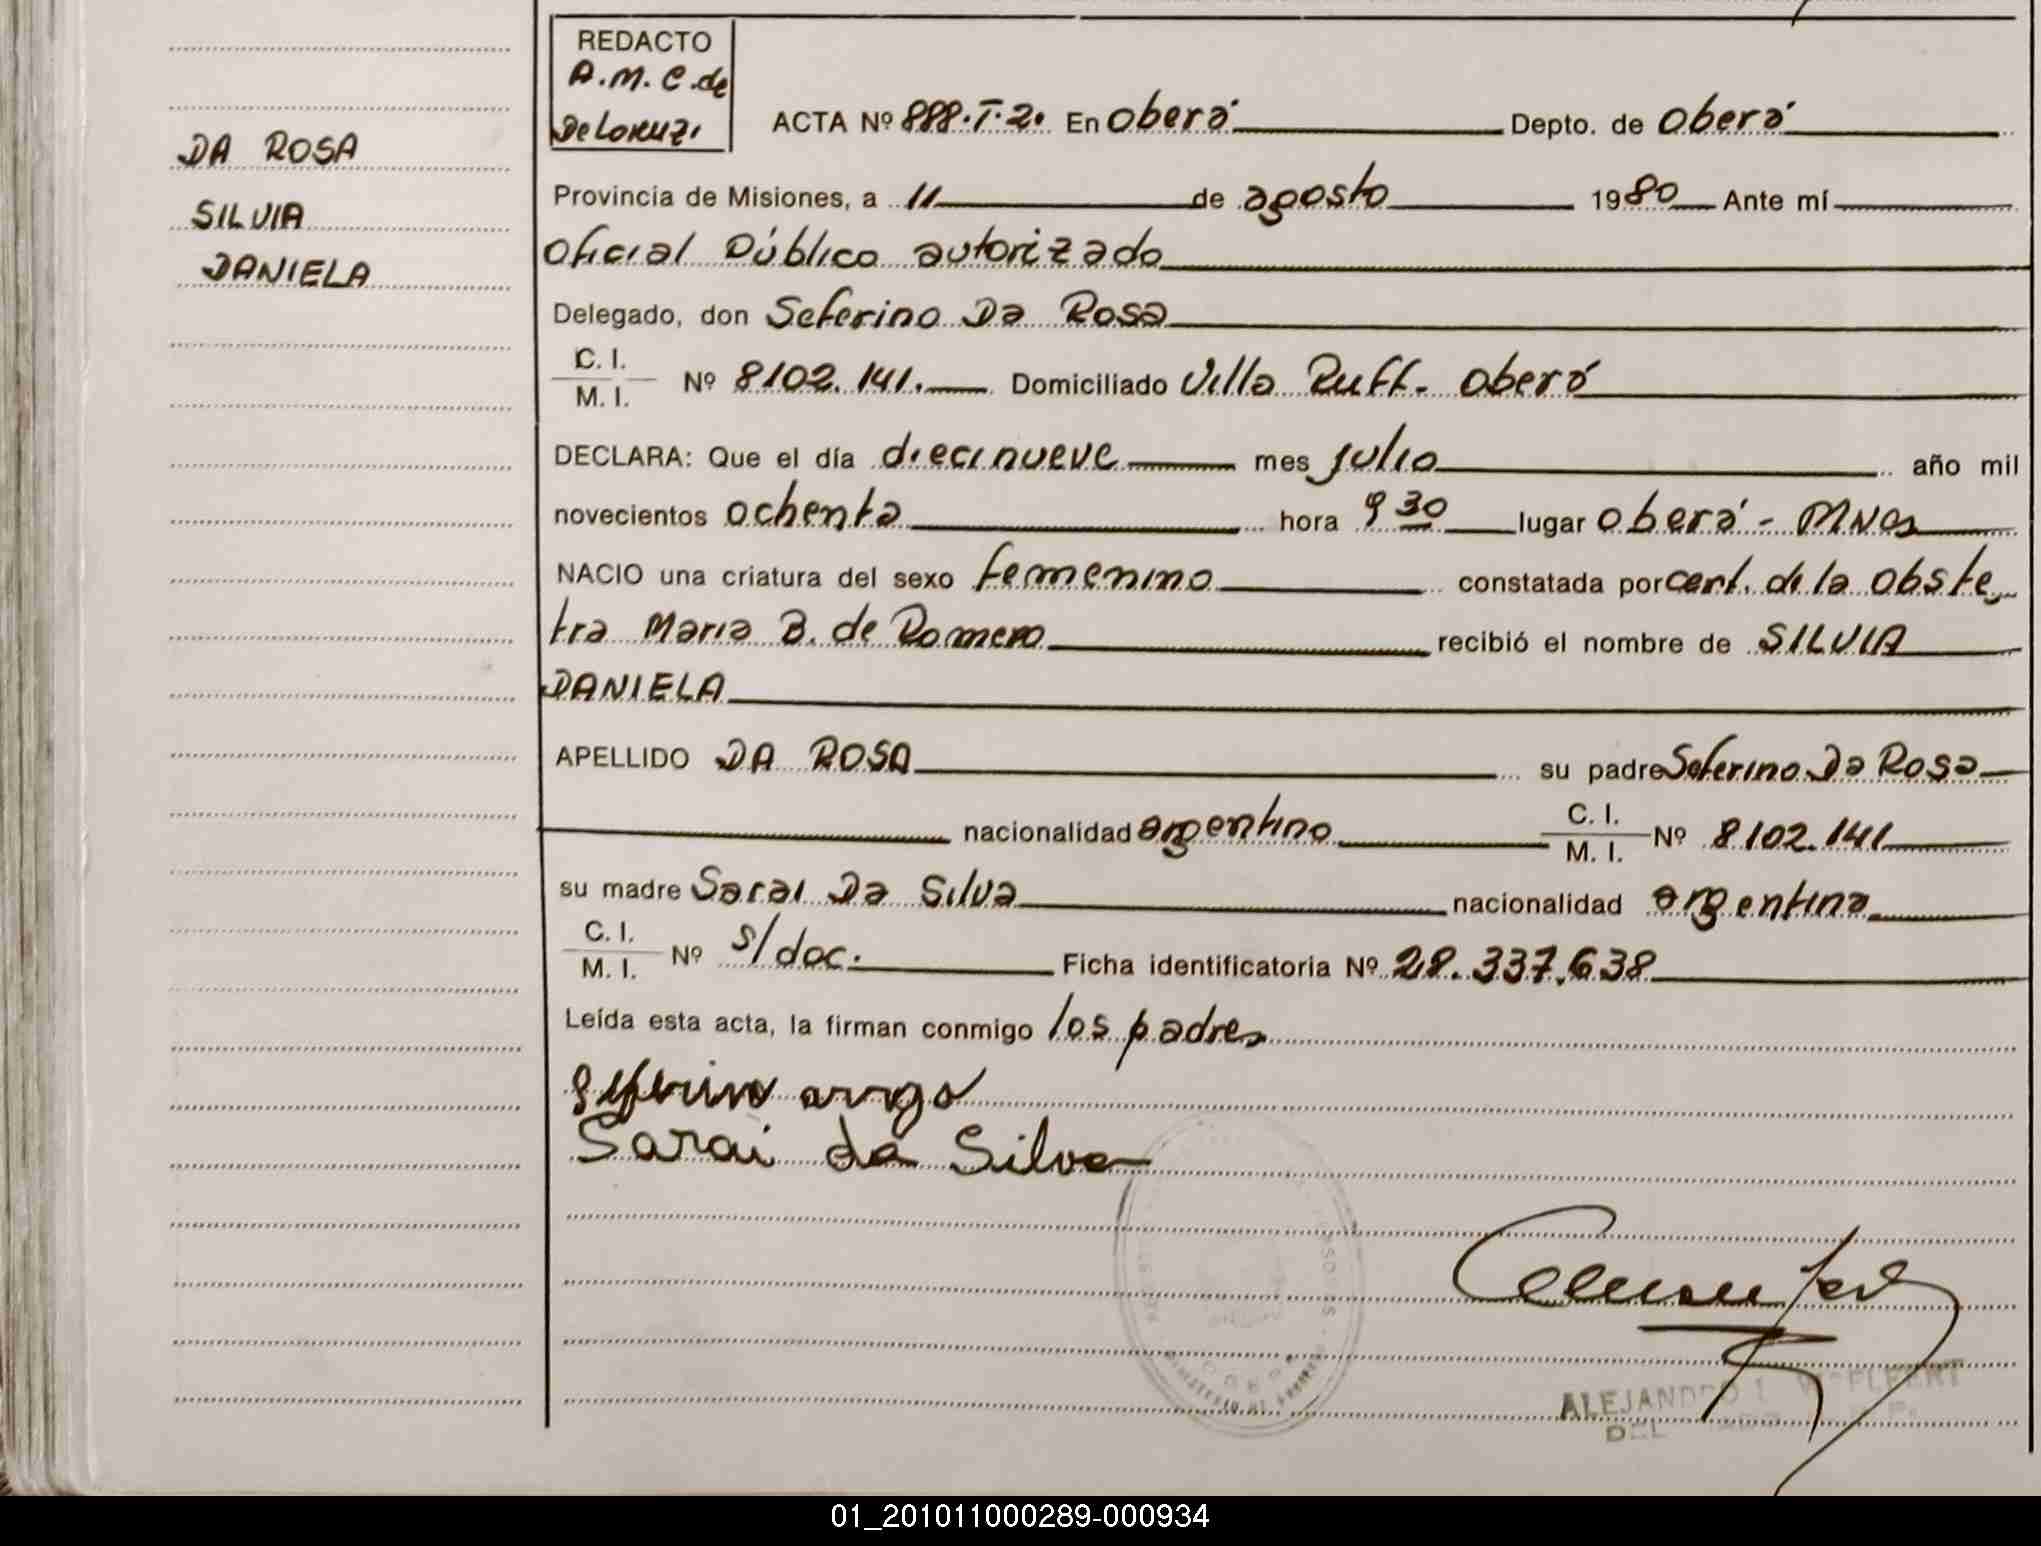 REDACTO
A.M.C. de
DeLoruzi
DA ROSA
SILVIA
DANIELA
ACTA Nº 888.T.2. En Oberá Depto. de Oberá
Provincia de Misiones, a 11 de agosto 1980 Ante mí
Oficial Público autorizado
Delegado, don Seferino Da Rosa
C. I.
M. I. Nº 8102.141. Domiciliado Villa Ruff. Oberá
DECLARA: Que el día diecinueve mes julio año mil
novecientos ochenta hora 9 30 lugar Oberá - Mnes
NACIO una criatura del sexo femenino constatada por cert. de la obste
tra Maria B. de Romero recibió el nombre de SILVIA
DANIELA
APELLIDO DA ROSA su padre Seferino Da Rosa
nacionalidad argentino C. I.
M. I. Nº 8102.141
su madre Sarai Da Silva nacionalidad argentina
C. I.
M. I. Nº s/doc. Ficha identificatoria Nº 28.337.638
Leída esta acta, la firman conmigo los padres
Sarai da Silva
ALEJANDRO
01_201011000289-000934